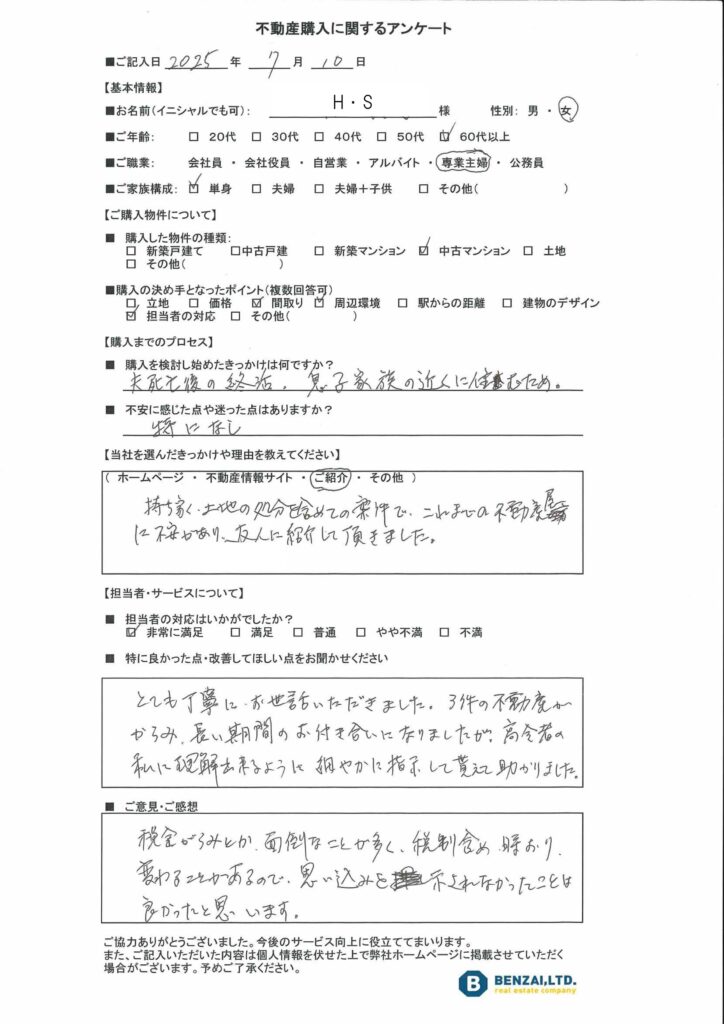 不動産購入に関するアンケート
■ご記入日 2025 年 7 月 10 日
【基本情報】
■お名前(イニシャルでも可): H・S 様 性別: 男 ・ 女
■ご年齢: □ 20代 □ 30代 □ 40代 □ 50代 ☑ 60代以上
■ご職業: 会社員 ・ 会社役員 ・ 自営業 ・ アルバイト ・ 専業主婦 ・ 公務員
■ご家族構成: ☑ 単身 □ 夫婦 □ 夫婦+子供 □ その他( )
【ご購入物件について】
■ 購入した物件の種類:
□ 新築戸建て □中古戸建 □ 新築マンション ☑ 中古マンション □ 土地
□ その他( )
■購入の決め手となったポイント(複数回答可)
□ 立地 □ 価格 ☑ 間取り ☑ 周辺環境 □ 駅からの距離 □ 建物のデザイン
☑ 担当者の対応 □ その他( )
【購入までのプロセス】
■ 購入を検討し始めたきっかけは何ですか?
夫死亡後の終活、息子家族の近くに住むため。
■ 不安に感じた点や迷った点はありますか?
特になし
【当社を選んだきっかけや理由を教えてください】
( ホームページ ・ 不動産情報サイト ・ ご紹介 ・ その他 )
持ち家、土地の処分を含めての案件で、これまでの不動産屋
に不安があり、友人に紹介して頂きました。
【担当者・サービスについて】
■ 担当者の対応はいかがでしたか?
☑ 非常に満足 □ 満足 □ 普通 □ やや不満 □ 不満
■ 特に良かった点・改善してほしい点をお聞かせください
とても丁寧にお世話いただきました。3件の不動産が
からみ、長い期間のお付き合いになりましたが、高令者の
私に理解出来るように細やかに指示して貰えて助かりました。
■ ご意見・ご感想
税金がらみとか、面倒なことが多く、税制含め、時おり、
変わることがあるので、思い込みを示されなかったことは
良かったと思います。
ご協力ありがとうございました。今後のサービス向上に役立ててまいります。
また、ご記入いただいた内容は個人情報を伏せた上で弊社ホームページに掲載させていただく
場合がございます。予めご了承ください。
B BENZAI,LTD.
real estate company